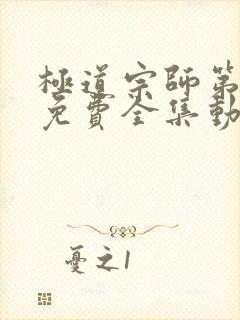 極道宗師第
免費全集動
憂之1